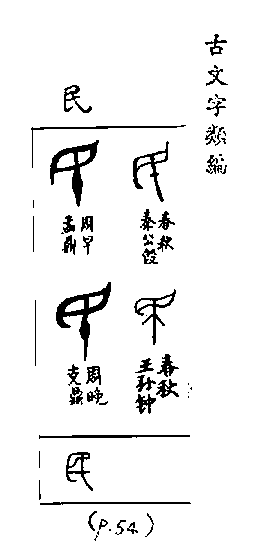 古文字類編
民
春秋
秦公𣪘
周早
盂鼎
春秋
王孙钟
周晚
克鼎
(P.54.)